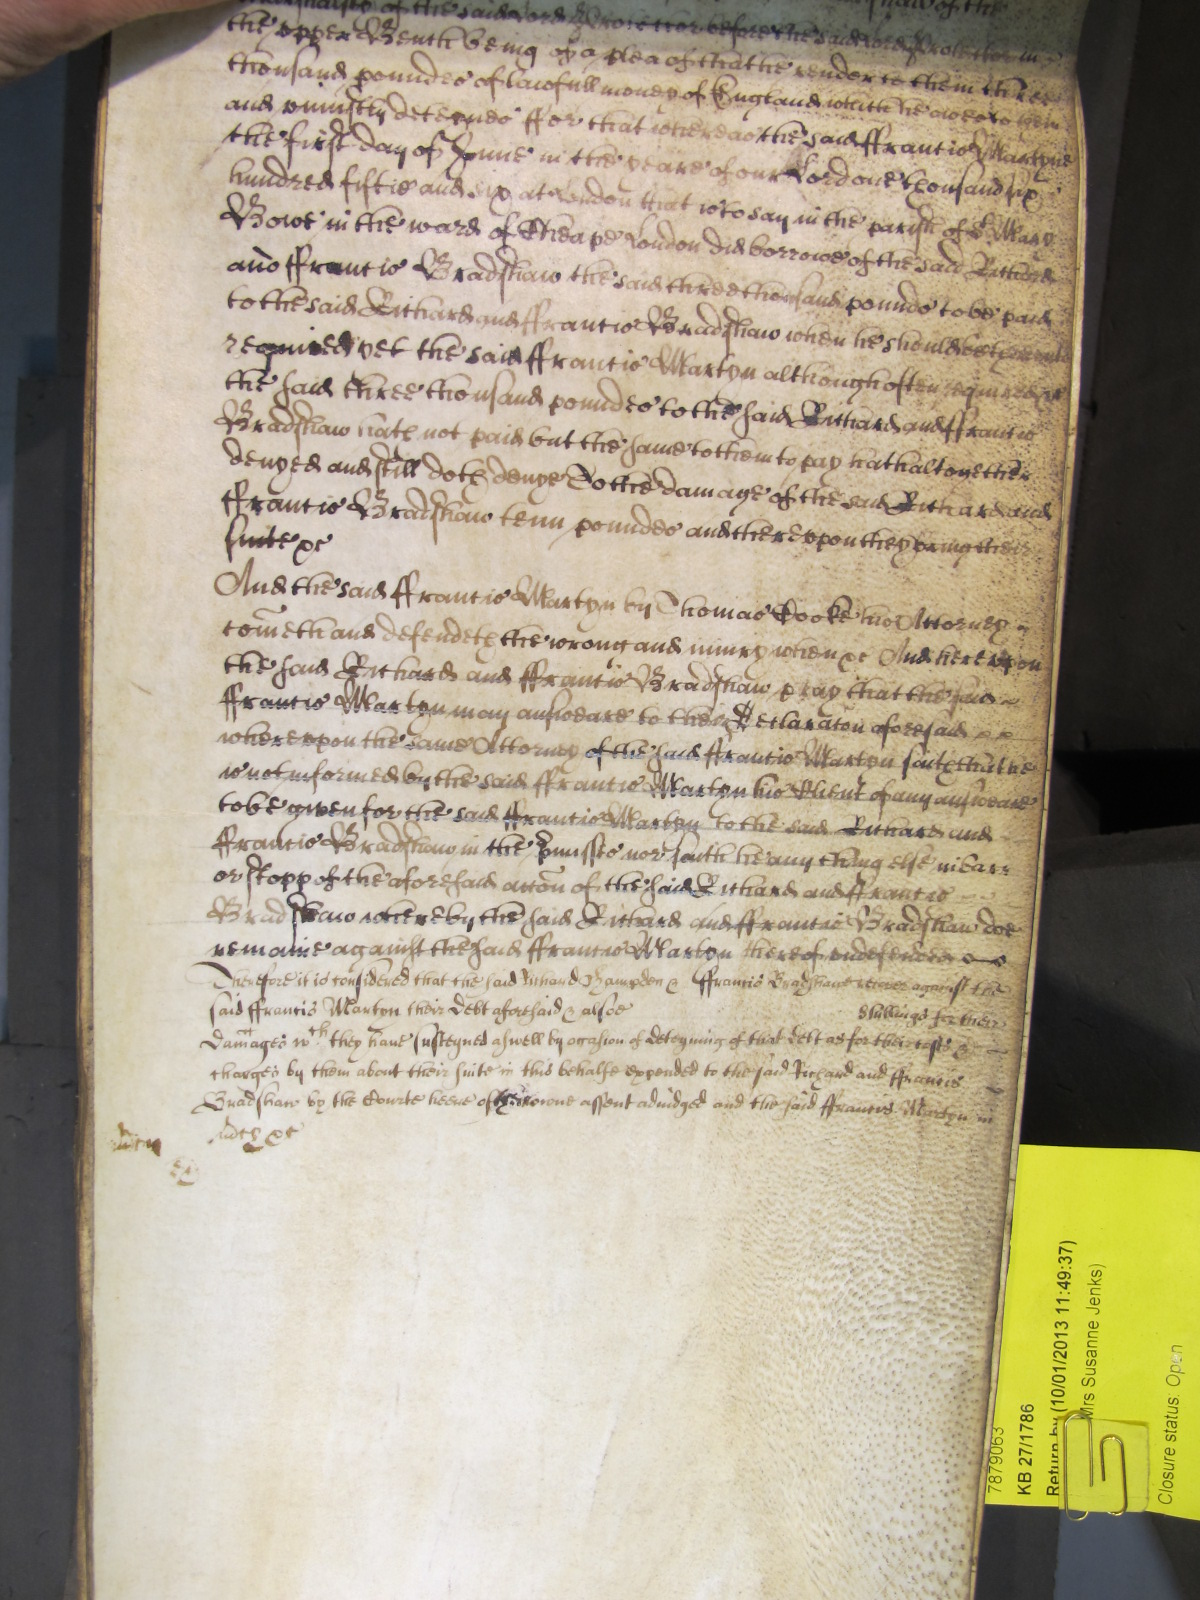 of the said Lord Protector before the said Lord Protector in
the upper Bench being of a plea of that he render to them three
thousand poundes of lawfull money of England which he owes to them
and uniustly deteynes ffor that whereas the said ffrancis Martyn
the first day of June in the yeare of our Lord one thousand six
hundred fiftie and six at London that is to say in the parish of S Mary
Bowe in the ward of Cheape London did borrowe of the said Richard
and ffrancis Bradshaw the said three thousand pounds to be paid
to the said Richard and ffrancis Bradshaw when he should be thereunto
required yet the said ffrancis Martyn although often required
the said three thousand poundes to the said Richard and ffrancis
Bradshaw hath not paid but the same to them to pay hath altogether
denyed and still doth denye To the damage of the said Richard and
ffrancis Bradshaw tenn poundes and thereupon they bring their
suite &c
And the said ffrancis Martyn by Thomas Cooke his Attorney
cometh and defendeth the wrong and iniury when &c And hereupon
the said Richard and ffrancis Bradshaw pray that the said
ffrancis Martyn may answeare to their Declaracon aforesaid
whereupon the same Attorney of the said ffrancis Martyn saith that he
is not informed by the said ffrancis Martyn his Client of any answeare
to be given for the said ffrancis Martyn to the said Richard and
ffrancis Bradshaw in the pmisses nor saith he any thing else in barr
or stopp of the aforesaid accon of the said Richard and ffrancis
Bradshaw whereby the said Richard and ffrancis Bradshaw doe
remaine against the said ffrancis Martyn thereof undefended
Therefore it is considered that the said Richard Hampden & ffrancis Bradshawe recover against the
said ffrancis Martyn their Debt aforesaid & alsoe shillings for their
Damages wch they have susteyned aswell by occasion of deteyning of that Debt as for their costs &
charges by them about their suite in this behalfe expended to the said Richard and ffrancis
Bradshaw by the Courte heere of their owne assent adiudged and the said ffrancis Martyn in
mcy &c
7879063
KB 27/1786
Return by (10/01/2013 11:49:37)
Mrs Susanne Jenks)
Closure status: Open